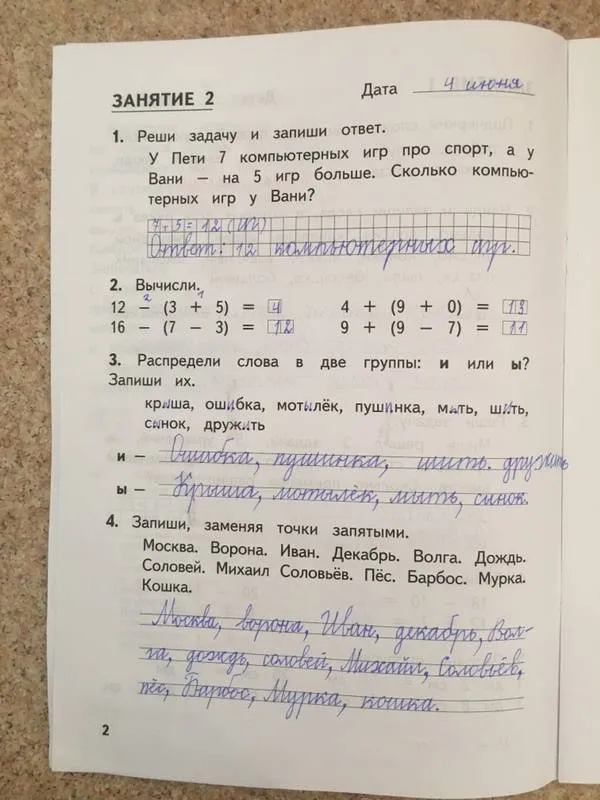 ЗАНЯТИЕ 2 Дата 4 июня
1. Реши задачу и запиши ответ.
У Пети 7 компьютерных игр про спорт, а у
Вани – на 5 игр больше. Сколько компью-
терных игр у Вани?
7+5=12 (иг)
Ответ: 12 компьютерных игр.
2. Вычисли.
2 1
12 – (3 + 5) = 4 4 + (9 + 0) = 13
16 – (7 – 3) = 12 9 + (9 – 7) = 11
3. Распредели слова в две группы: и или ы?
Запиши их.
крыша, ошибка, мотылёк, пушинка, мыть, шить,
сынок, дружить
и – Ошибка, пушинка, шить. дружить
ы – Крыша, мотылёк, мыть, синок.
4. Запиши, заменяя точки запятыми.
Москва. Ворона. Иван. Декабрь. Волга. Дождь.
Соловей. Михаил Соловьёв. Пёс. Барбос. Мурка.
Кошка.
Москва, ворона, Иван, декабрь, Вол-
га, дождь, соловей, Михаил, Соловьёв,
пёс, Барбос, Мурка, кошка.
2